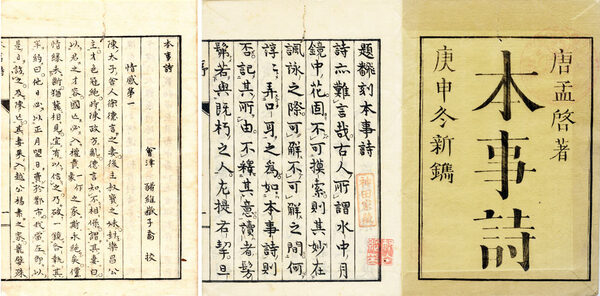 唐孟啓著
本事詩
庚申冬新鐫
題翻刻本事詩
詩亦難言哉古人所謂水中月
鏡中花固不可摸索則其妙在
諷詠之際可解不可解之間何
諄〻弄口耳之為如本事詩則
否記其所由不釋其意讀者髣
髴若與既朽之人左提右挈旦
本事詩
情感第一
會津 維嶽子喬 校
陳太子舍人徐德言之妻後主叔寶之妹封樂昌公
主才色冠絕時陳政方亂德言知不相保謂其妻曰
以君之才容國亡必入權貴豪之家斯永絕矣儻
情緣未斷猶冀相見宜有以信之乃破一鏡執其
半約曰他日必以正月望日賣於都市我當在即以
是日訪之及陳亡其妻果入越公楊素之家寵嬖殊